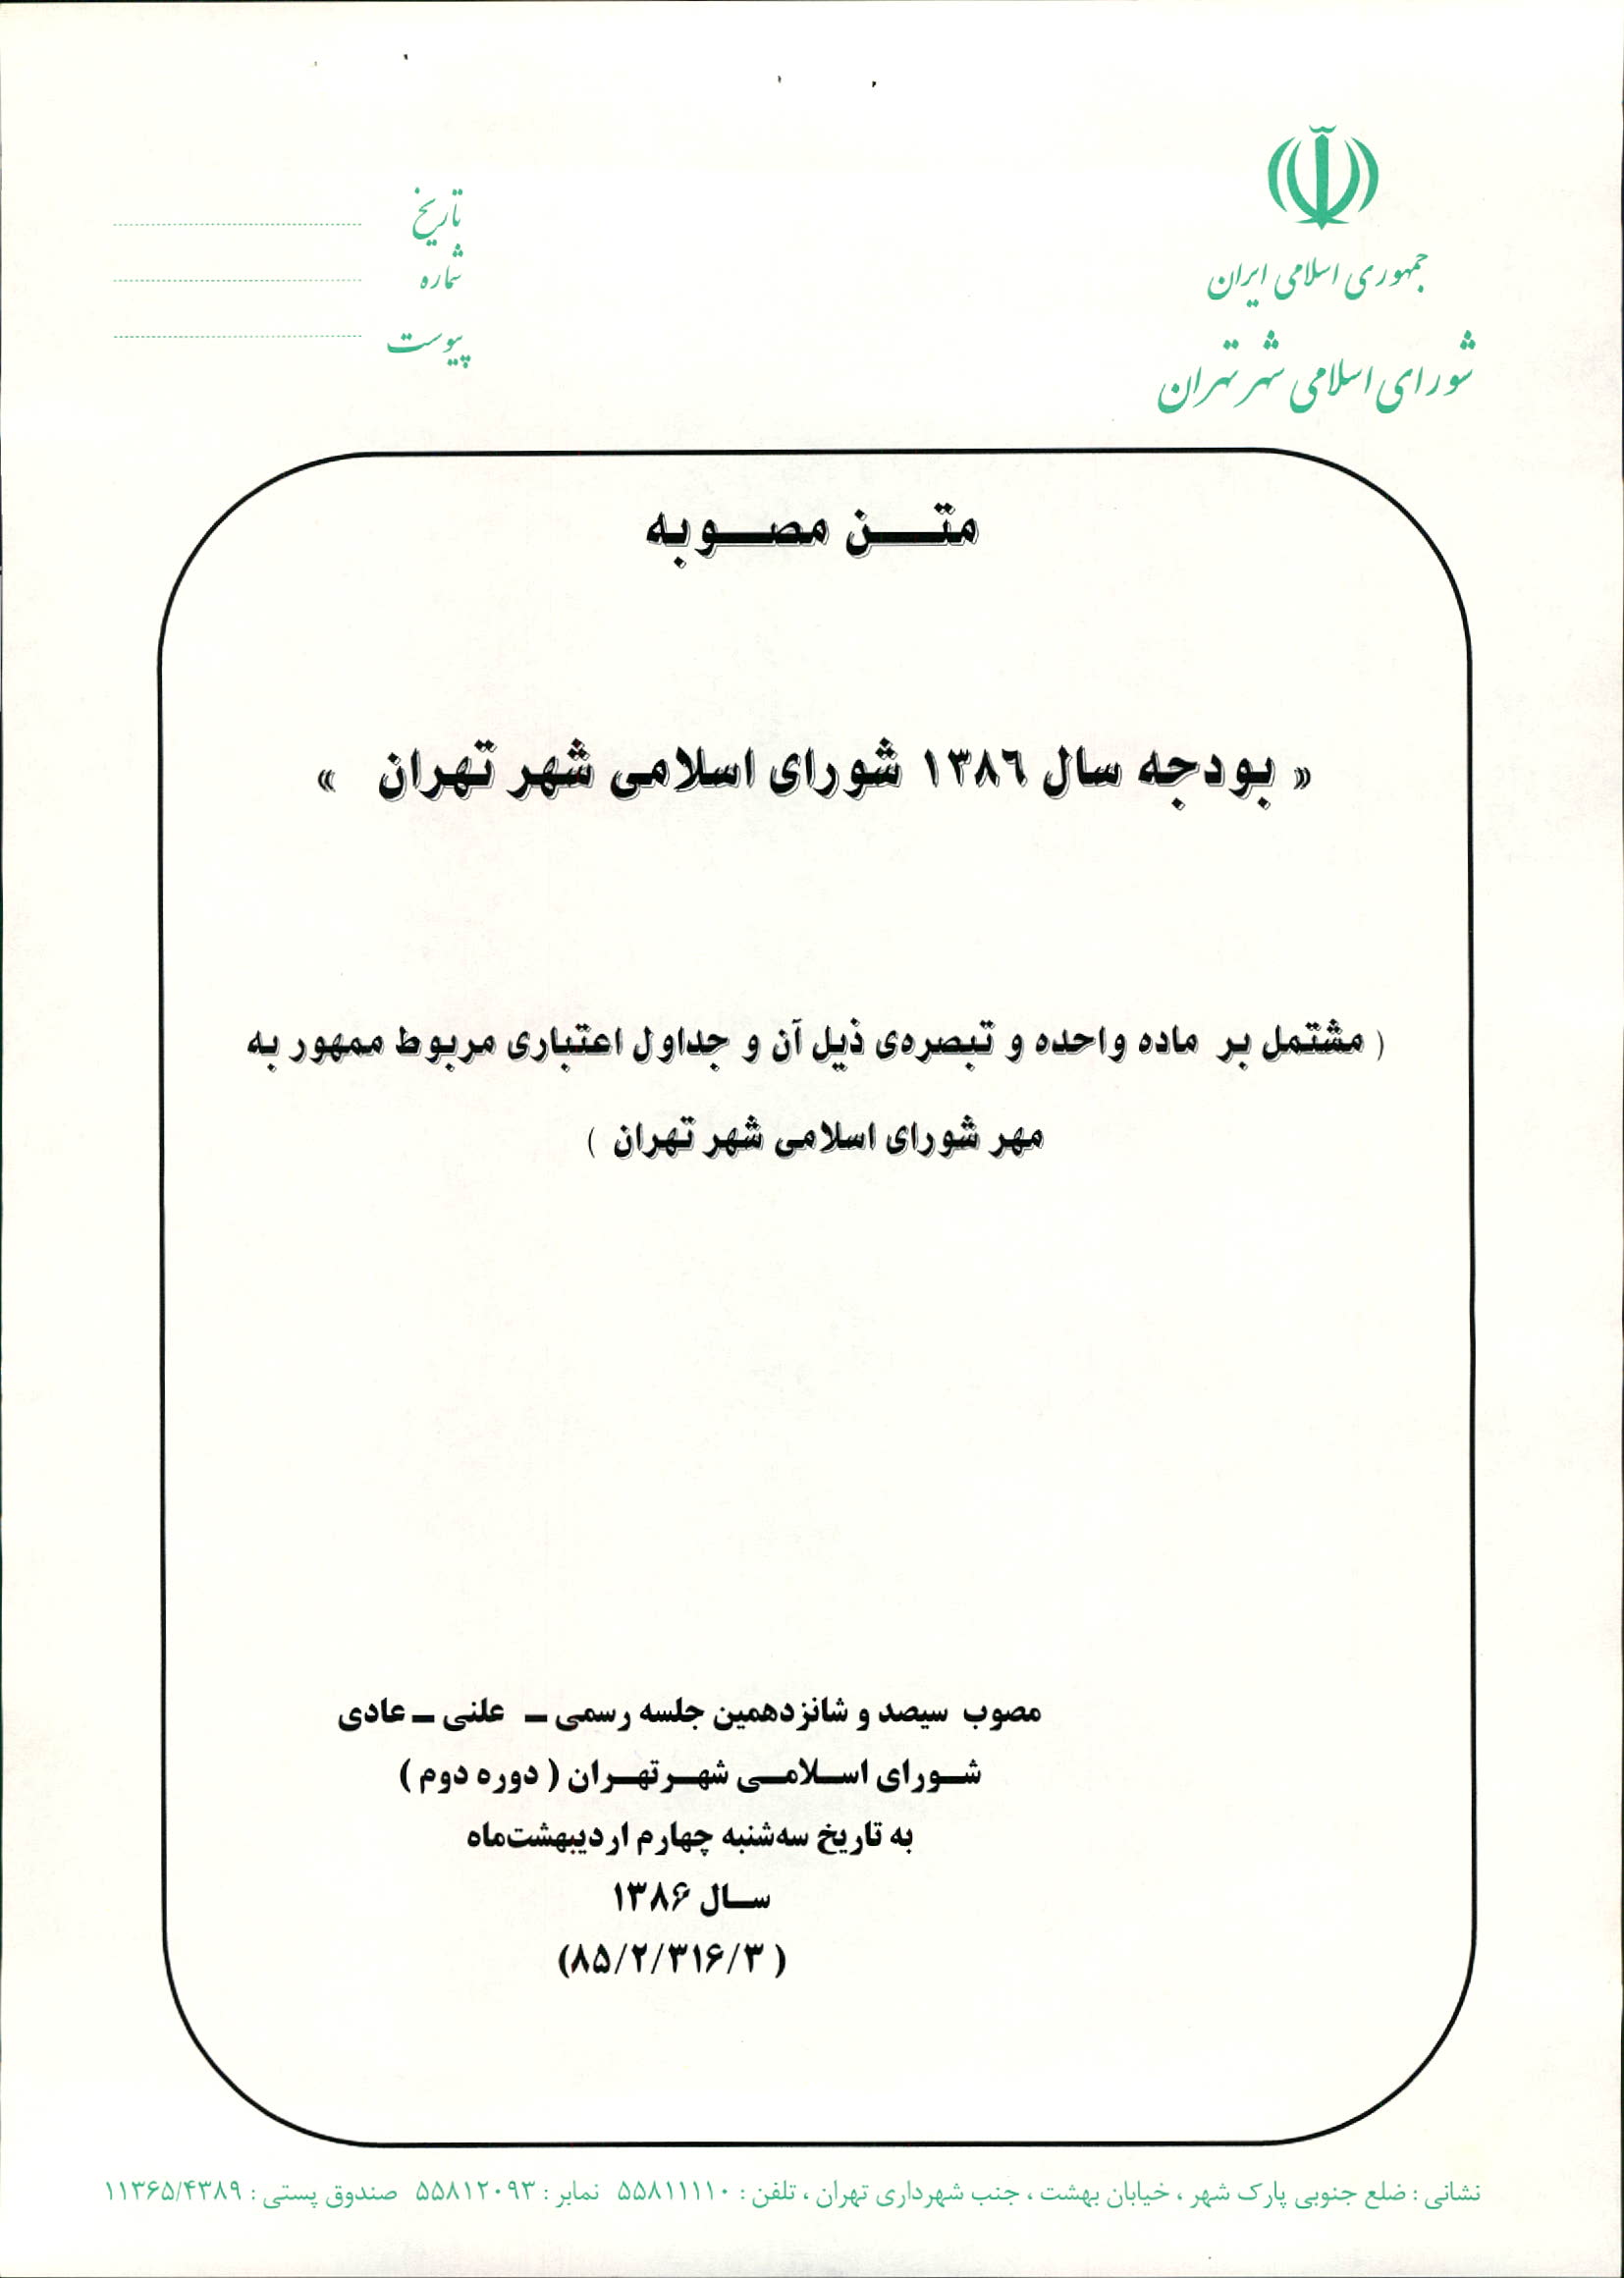 جمهوری اسلامی ایران
شورای اسلامی شهر تهران
تاریخ
شماره
پیوست
متـــن مصـــوبه
« بودجه سال ۱۳۸۶ شورای اسلامی شهر تهران »
( مشتمل بر ماده واحده و تبصره‌ی ذیل آن و جداول اعتباری مربوط ممهور به
مهر شورای اسلامی شهر تهران )
مصوب سیصد و شانزدهمین جلسه رسمی ـ علنی ـ عادی
شـورای اسـلامـی شهـر تهـران ( دوره دوم )
به تاریخ سه‌شنبه چهارم اردیبهشت‌ماه
سـال ۱۳۸۶
(۸۵/۲/۳۱۶/۳ )
نشانی : ضلع جنوبی پارک شهر ، خیابان بهشت ، جنب شهرداری تهران ، تلفن : ۵۵۸۱۱۱۱۰ نمابر : ۵۵۸۱۲۰۹۳ صندوق پستی : ۱۱۳۶۵/۴۳۸۹